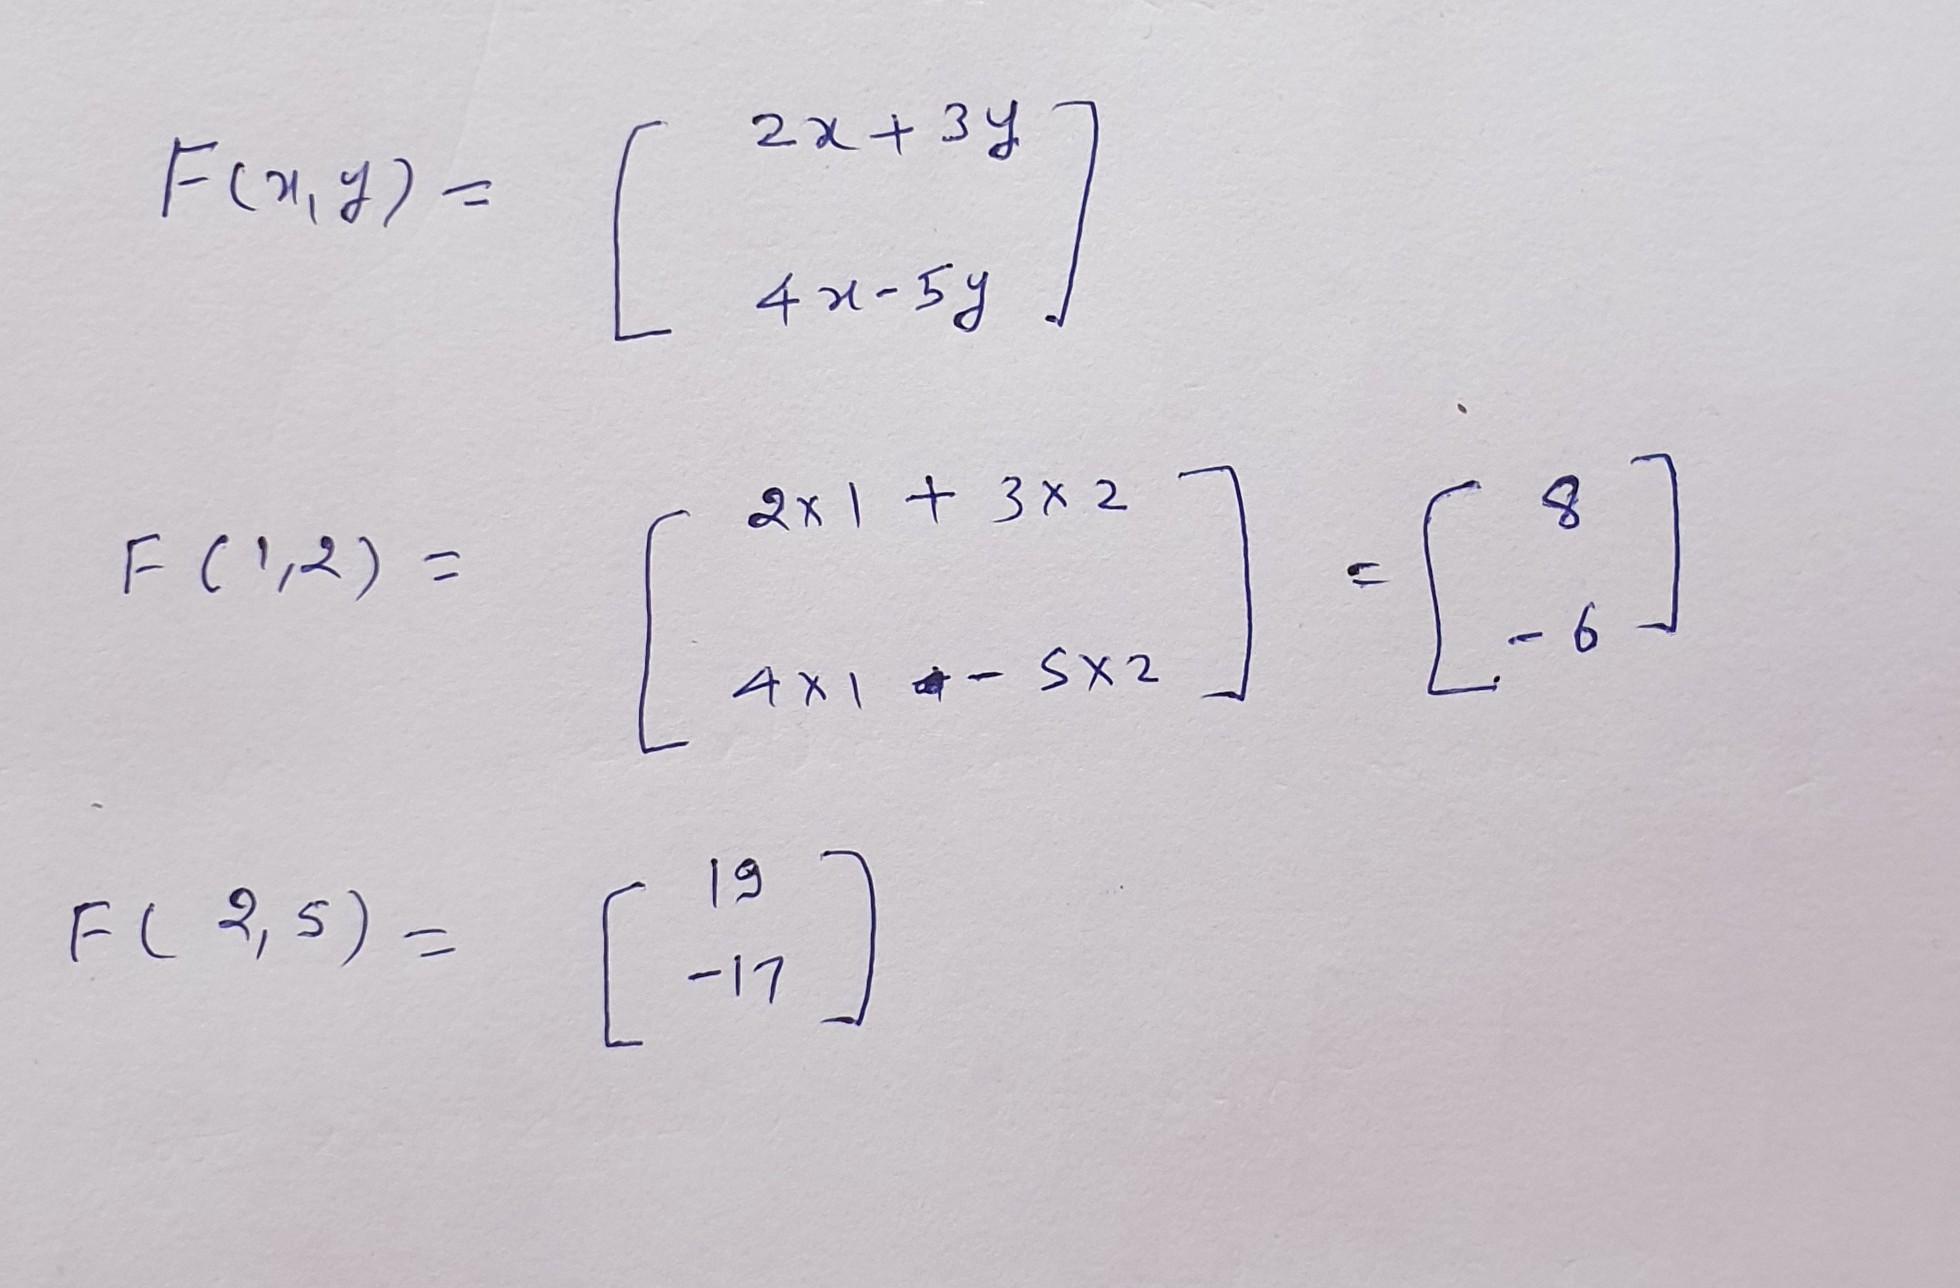 F(x,y) = [ 2x + 3y
4x - 5y ]
F(1,2) = [ 2x1 + 3x2
4x1 - 5x2 ] = [ 8
-6 ]
F(2,5) = [ 19
-17 ]